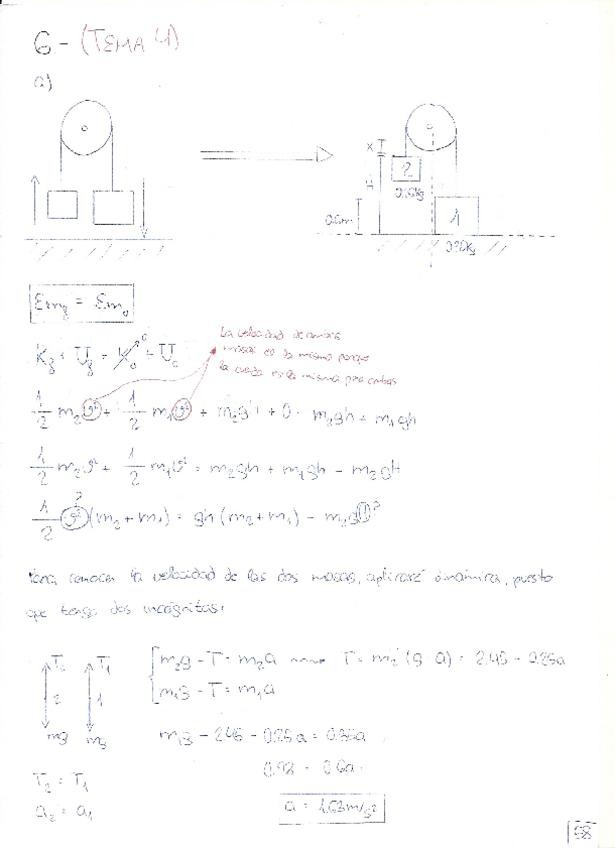 6 - (TEMA 4)
a)
X
2
H
0.6m
0.25kg
1
0.35kg
Em_f = Em_0
K_f + U_f = K_0 + U_0
0
La velocidad de ambas
masas es la misma porque
la cuerda es la misma para ambas
1/2 m_2 v² + 1/2 m_1 v² + m_2 g H + 0 = m_2 g h + m_1 g h
1/2 m_2 v² + 1/2 m_1 v² = m_2 g h + m_1 g h - m_2 g H
1/2 v² (m_2 + m_1) = g h (m_2 + m_1) - m_2 g H
?
?
Para conocer la velocidad de las dos masas, aplicaré dinámica, puesto
que tengo dos incógnitas:
T_2 T_1
2 1
mg mg
m_2 g - T = m_2 a → T = m_2 (g a) = 2.45 - 0.25a
m_1 g - T = m_1 a
m_1 g - 2.45 - 0.25a = 0.35a
0.98 = 0.6a
T_2 = T_1
a_2 = a_1
a = 1.63 m/s²
58